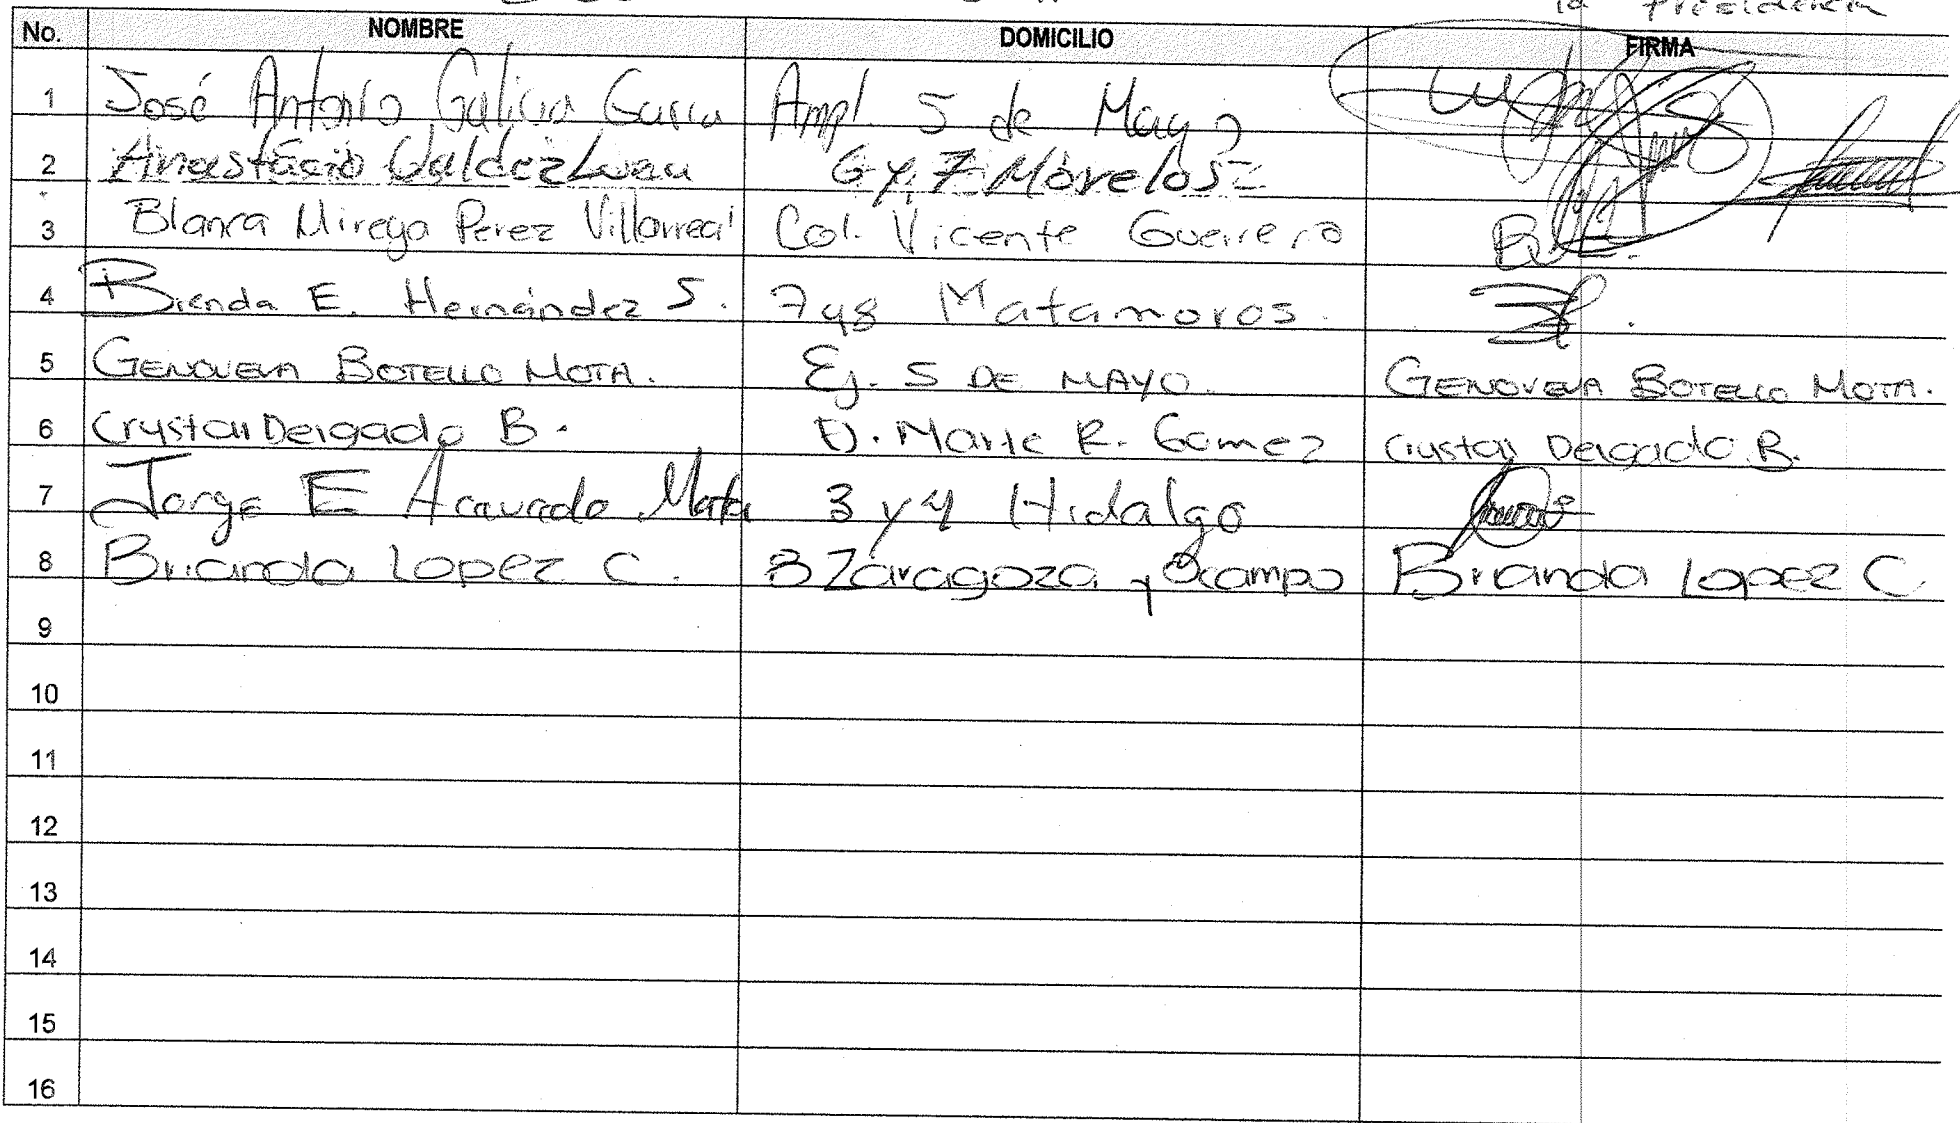 la Presidencia
No. NOMBRE DOMICILIO FIRMA
1 José Antonio Galicia Garcia Ampl. 5 de Mayo
2 Anastacio Valdez 6 y 7 Morelos
3 Blanca Mireya Perez Villarreal Col. Vicente Guerrero
4 Brenda E. Hernández S. 7 y 8 Matamoros.
5 GENOVEVA BOTELLO MOTA. Ej. 5 DE MAYO. GENOVEVA BOTELLO MOTA.
6 Crystall Delgado B. R. Gomez Crystall Delgado B.
7 Jorge E Mata 3 y 4 Hidalgo
8 Brianda Lopez C. Zaragoza y Ocampo Brianda Lopez C.
9
10
11
12
13
14
15
16